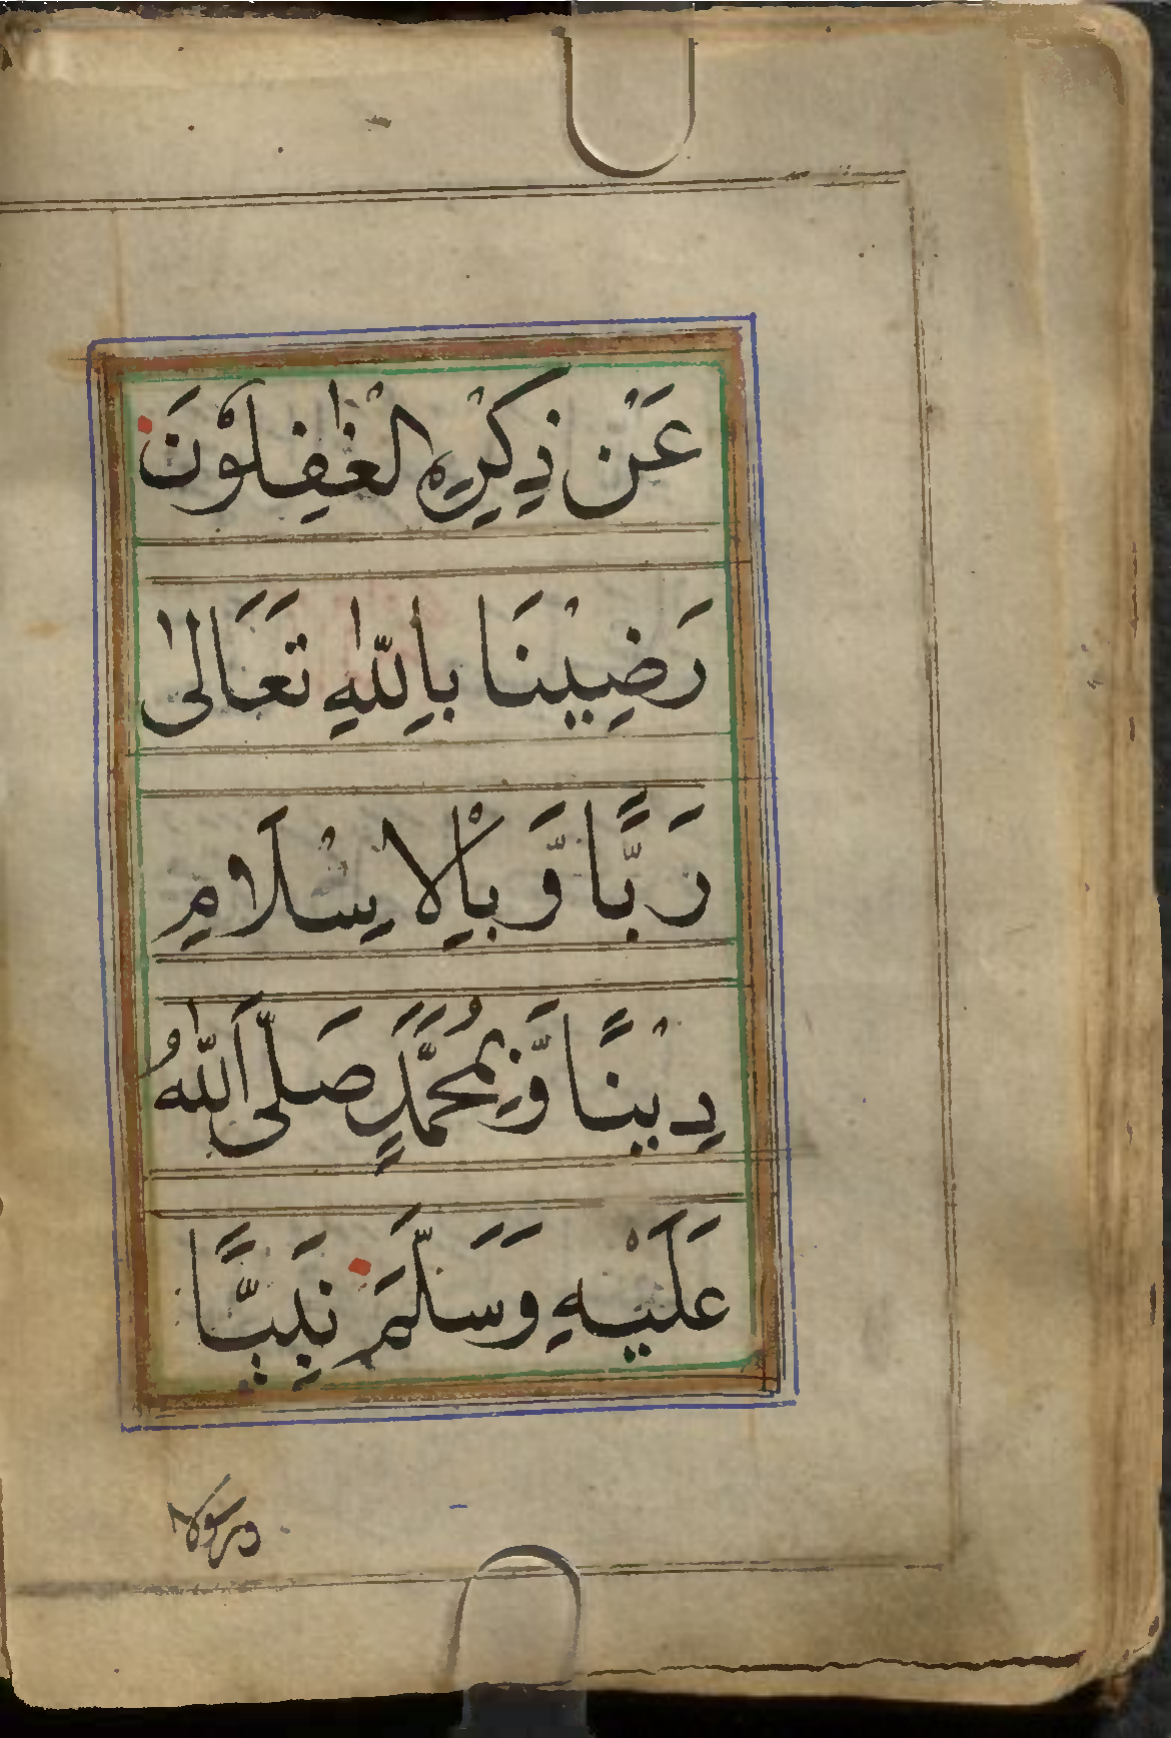 عَنْ ذِكْرِهِ الْغٰفِلُوْنَ
رَضِيْنَا بِاللّٰهِ تَعَالٰى
رَبًّا وَّبِالْاِسْلَامِ
دِيْنًا وَّبِمُحَمَّدٍ صَلَّى اللّٰهُ
عَلَيْهِ وَسَلَّمَ نَبِيًّا
ورسولا